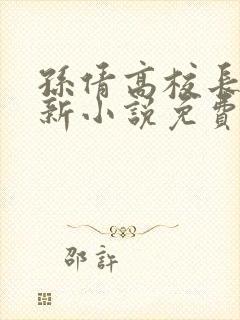 孫倩高校長
新小說免費
邵許